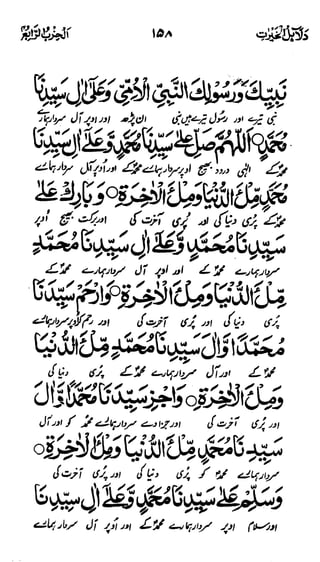 دلائل الخیرات ۱۵۸ الحزب الرابع
نَبِيِّكَ وَرَسُوْلِكَ النَّبِيِّ الْاُمِّيِّ وَعَلٰٓى اٰلِ سَيِّدِنَا
نبی تیرے اور رسول تیرے ہیں نبی ان پڑھ اور اوپر آل سردار ہمارے
مُحَمَّدٍ ○ اَللّٰهُمَّ صَلِّ عَلٰى سَيِّدِنَا مُحَمَّدٍ وَّعَلٰٓى اٰلِ سَيِّدِنَا
محمدؐ کے الٰہی درود بھیج اوپر سردار ہمارے محمدؐ کے اور اوپر آل سردار ہمارے
مُحَمَّدٍ مِّلْءَ الدُّنْيَا وَمِلْءَ الْاٰخِرَةِ ○ وَبَارِكْ عَلٰى
محمدؐ کے پُری دنیا کی اور پُری آخرت کی اور برکت بھیج اوپر
سَيِّدِنَا مُحَمَّدٍ وَّعَلٰٓى اٰلِ سَيِّدِنَا مُحَمَّدٍ
سردار ہمارے محمدؐ کے اور اوپر آل سردار ہمارے محمدؐ کے
مِّلْءَ الدُّنْيَا وَمِلْءَ الْاٰخِرَةِ ○ وَارْحَمْ سَيِّدَنَا
پُری دنیا کی اور پُری آخرت کی اور رحم کر اوپر سردار ہمارے
مُحَمَّدًا وَّاٰلَ سَيِّدِنَا مُحَمَّدٍ مِّلْءَ الدُّنْيَا
محمدؐ کے اور آل سردار ہمارے محمدؐ کے پُری دنیا کی
وَمِلْءَ الْاٰخِرَةِ ○ وَاجْزِ سَيِّدَنَا مُحَمَّدًا وَّاٰلَ
اور پُری آخرت کی اور جزا دے سردار ہمارے محمدؐ کو اور آل
سَيِّدِنَا مُحَمَّدٍ مِّلْءَ الدُّنْيَا وَمِلْءَ الْاٰخِرَةِ ○
سردار ہمارے محمدؐ کو پُری دنیا کی اور پُری آخرت کی
وَسَلِّمْ عَلٰى سَيِّدِنَا مُحَمَّدٍ وَّعَلٰٓى اٰلِ سَيِّدِنَا
اور سلام اوپر سردار ہمارے محمدؐ کے اور اوپر آل سردار ہمارے